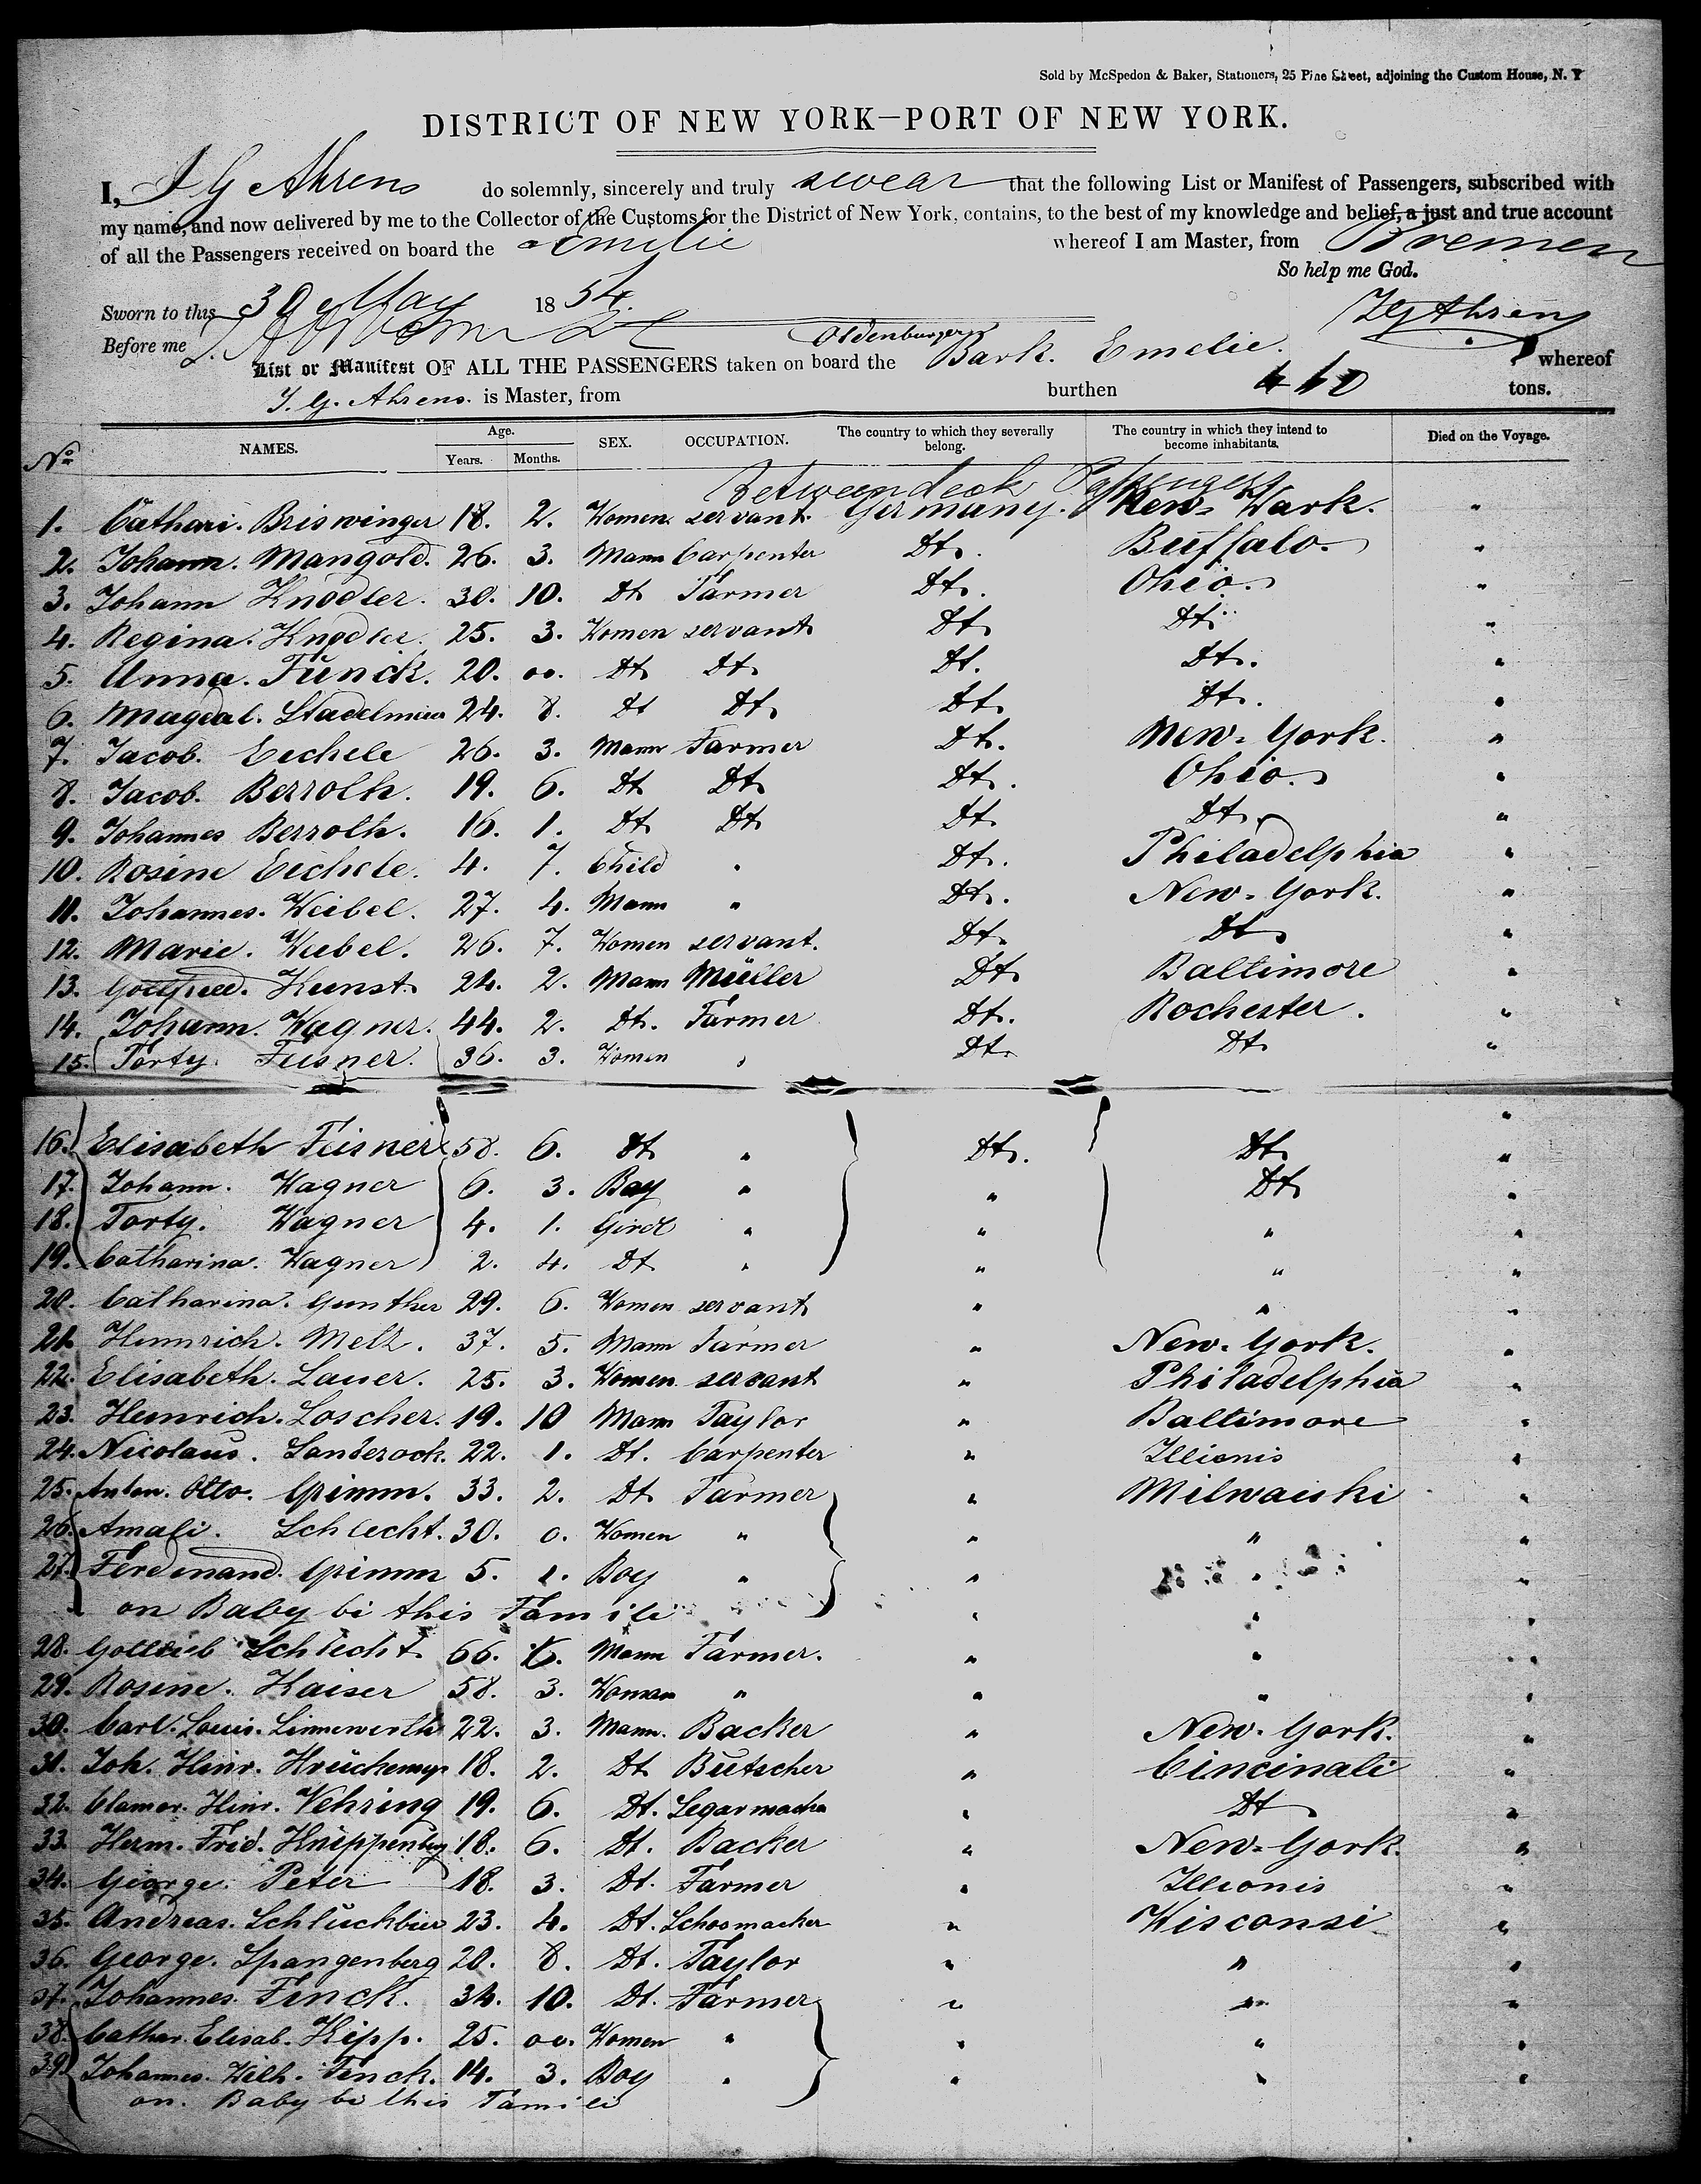 Sold by McSpedon & Baker, Stationers, 25 Pine Street, adjoining the Custom House, N. Y
DISTRICT OF NEW YORK—PORT OF NEW YORK.
I, J G Ahrens do solemnly, sincerely and truly swear that the following List or Manifest of Passengers, subscribed with
my name, and now delivered by me to the Collector of the Customs for the District of New York, contains, to the best of my knowledge and belief, a just and true account
of all the Passengers received on board the Emilie whereof I am Master, from Bremen
So help me God.
Sworn to this 30 May 1854. JG Ahrens
Before me
Oldenburger
List or Manifest OF ALL THE PASSENGERS taken on board the Bark. Emelie. whereof
J. G. Ahrens. is Master, from burthen tons.
No NAMES. Age. Years. Months. SEX. OCCUPATION. The country to which they severally belong. The country in which they intend to become inhabitants. Died on the Voyage.
Betweendeck Passengers
1. Cathari. Briswinger 18. 2. Women. servant. Germany. New-Wark. "
2. Johann. Mangold. 26. 3. Mann Carpenter Dt. Buffalo. "
3. Johann Knodler. 30. 10. Dt Farmer Dt. Ohio. "
4. Regina. Knodler. 25. 3. Women servant Dt Dt "
5. Anna. Funck. 20. oo. Dt Dt Dt. Dt. "
6. Magdal. Stadelmier 24. 8. Dt Dt Dt. Dt. "
7. Jacob. Eechele 26. 3. Mann Farmer Dt. New-York. "
8. Jacob. Berroth. 19. 6. Dt Dt Dt. Ohio. "
9. Johannes Berroth. 16. 1. Dt Dt Dt. Dt. "
10. Rosine Eechele. 4. 7. Child " Dt. Philadelphia "
11. Johannes. Weibel. 27. 4. Mann " Dt. New-York. "
12. Marie. Weibel. 26. 7. Women servant. Dt. Dt "
13. Gottfried. Kunst. 24. 2. Mann Müller Dt Baltimore "
14. Johann. Wagner. 44. 2. Dt. Farmer Dt. Rochester. "
15. Torty. Feisner. 36. 3. Women " Dt. Dt "
16. Elisabeth Feisner 58. 6. Dt " Dt. Dt "
17. Johann. Wagner 6. 3. Boy " " Dt "
18. Torty. Wagner 4. 1. Girel " " " "
19. Catharina. Wagner 2. 4. Dt " " " "
20. Catharina. Gunther 29. 6. Women servant " " "
21. Heinrich. Melz. 37. 5. Mann Farmer " New-York. "
22. Elisabeth. Lauer. 25. 3. Women. servant " Philadelphia "
23. Heinrich. Loscher. 19. 10 Mann Taylor " Baltimore "
24. Nicolaus. Santerock. 22. 1. Dt. Carpenter " Illionis "
25. Anton. Otto. Grimm. 33. 2. Dt Farmer " Milwauki "
26. Amali. Schlecht. 30. 0. Women " " " "
27. Ferdinand. Grimm 5. 1. Boy " " " "
on Baby bi this Famili " " "
28. Gottlieb Schlecht 66. 6. Mann Farmer. " " "
29. Rosine. Kaiser 58. 3. Woman " " " "
30. Carl. Louis. Linnewerth 22. 3. Mann. Backer " New-York. "
31. Joh. Hinr. 18. 2. Dt Butscher " Cincinati "
32. Clamor. Hinr. Vehring 19. 6. Dt. Segarmacher " Dt "
33. Herm. Frid. Knippenberg 18. 6. Dt. Backer " New-York. "
34. George. Peter 18. 3. Dt. Farmer " Illionis "
35. Andreas. Schluckbier 23. 4. Dt. Schoomacker " Wisconsi "
36. George. Spangenberg 20. 8. Dt. Taylor " " "
37. Johannes. Finck. 34. 10. Dt. Farmer " " "
38. Cathar. Elisab. Kipp. 25. oo. Women " " " "
39. Johannes. Wilh. Finck. 14. 3. Boy " " " "
on. Baby bi this Famili